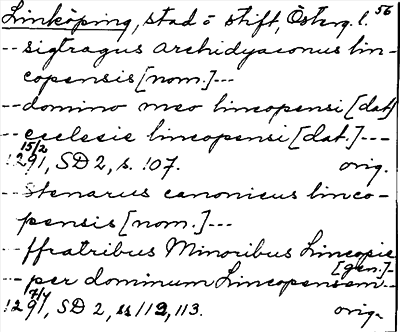 Linköping, stad o stift, Österg. l. 56
-- sigtragus archidyaconus lin-
copensis [nom.] ---
-- domino meo lincopensi [dat]
-- ecclesie lincopensi [dat.] ---
15/2
1291, SD 2, s. 107. orig.
-- Stenarus canonicus linco-
pensis [nom.] ---
-- ffratribus Minoribus Lincopie
[gen.] -
-- per dominum Lincopensem --
7/4
1291, SD 2, ss 112, 113. orig.